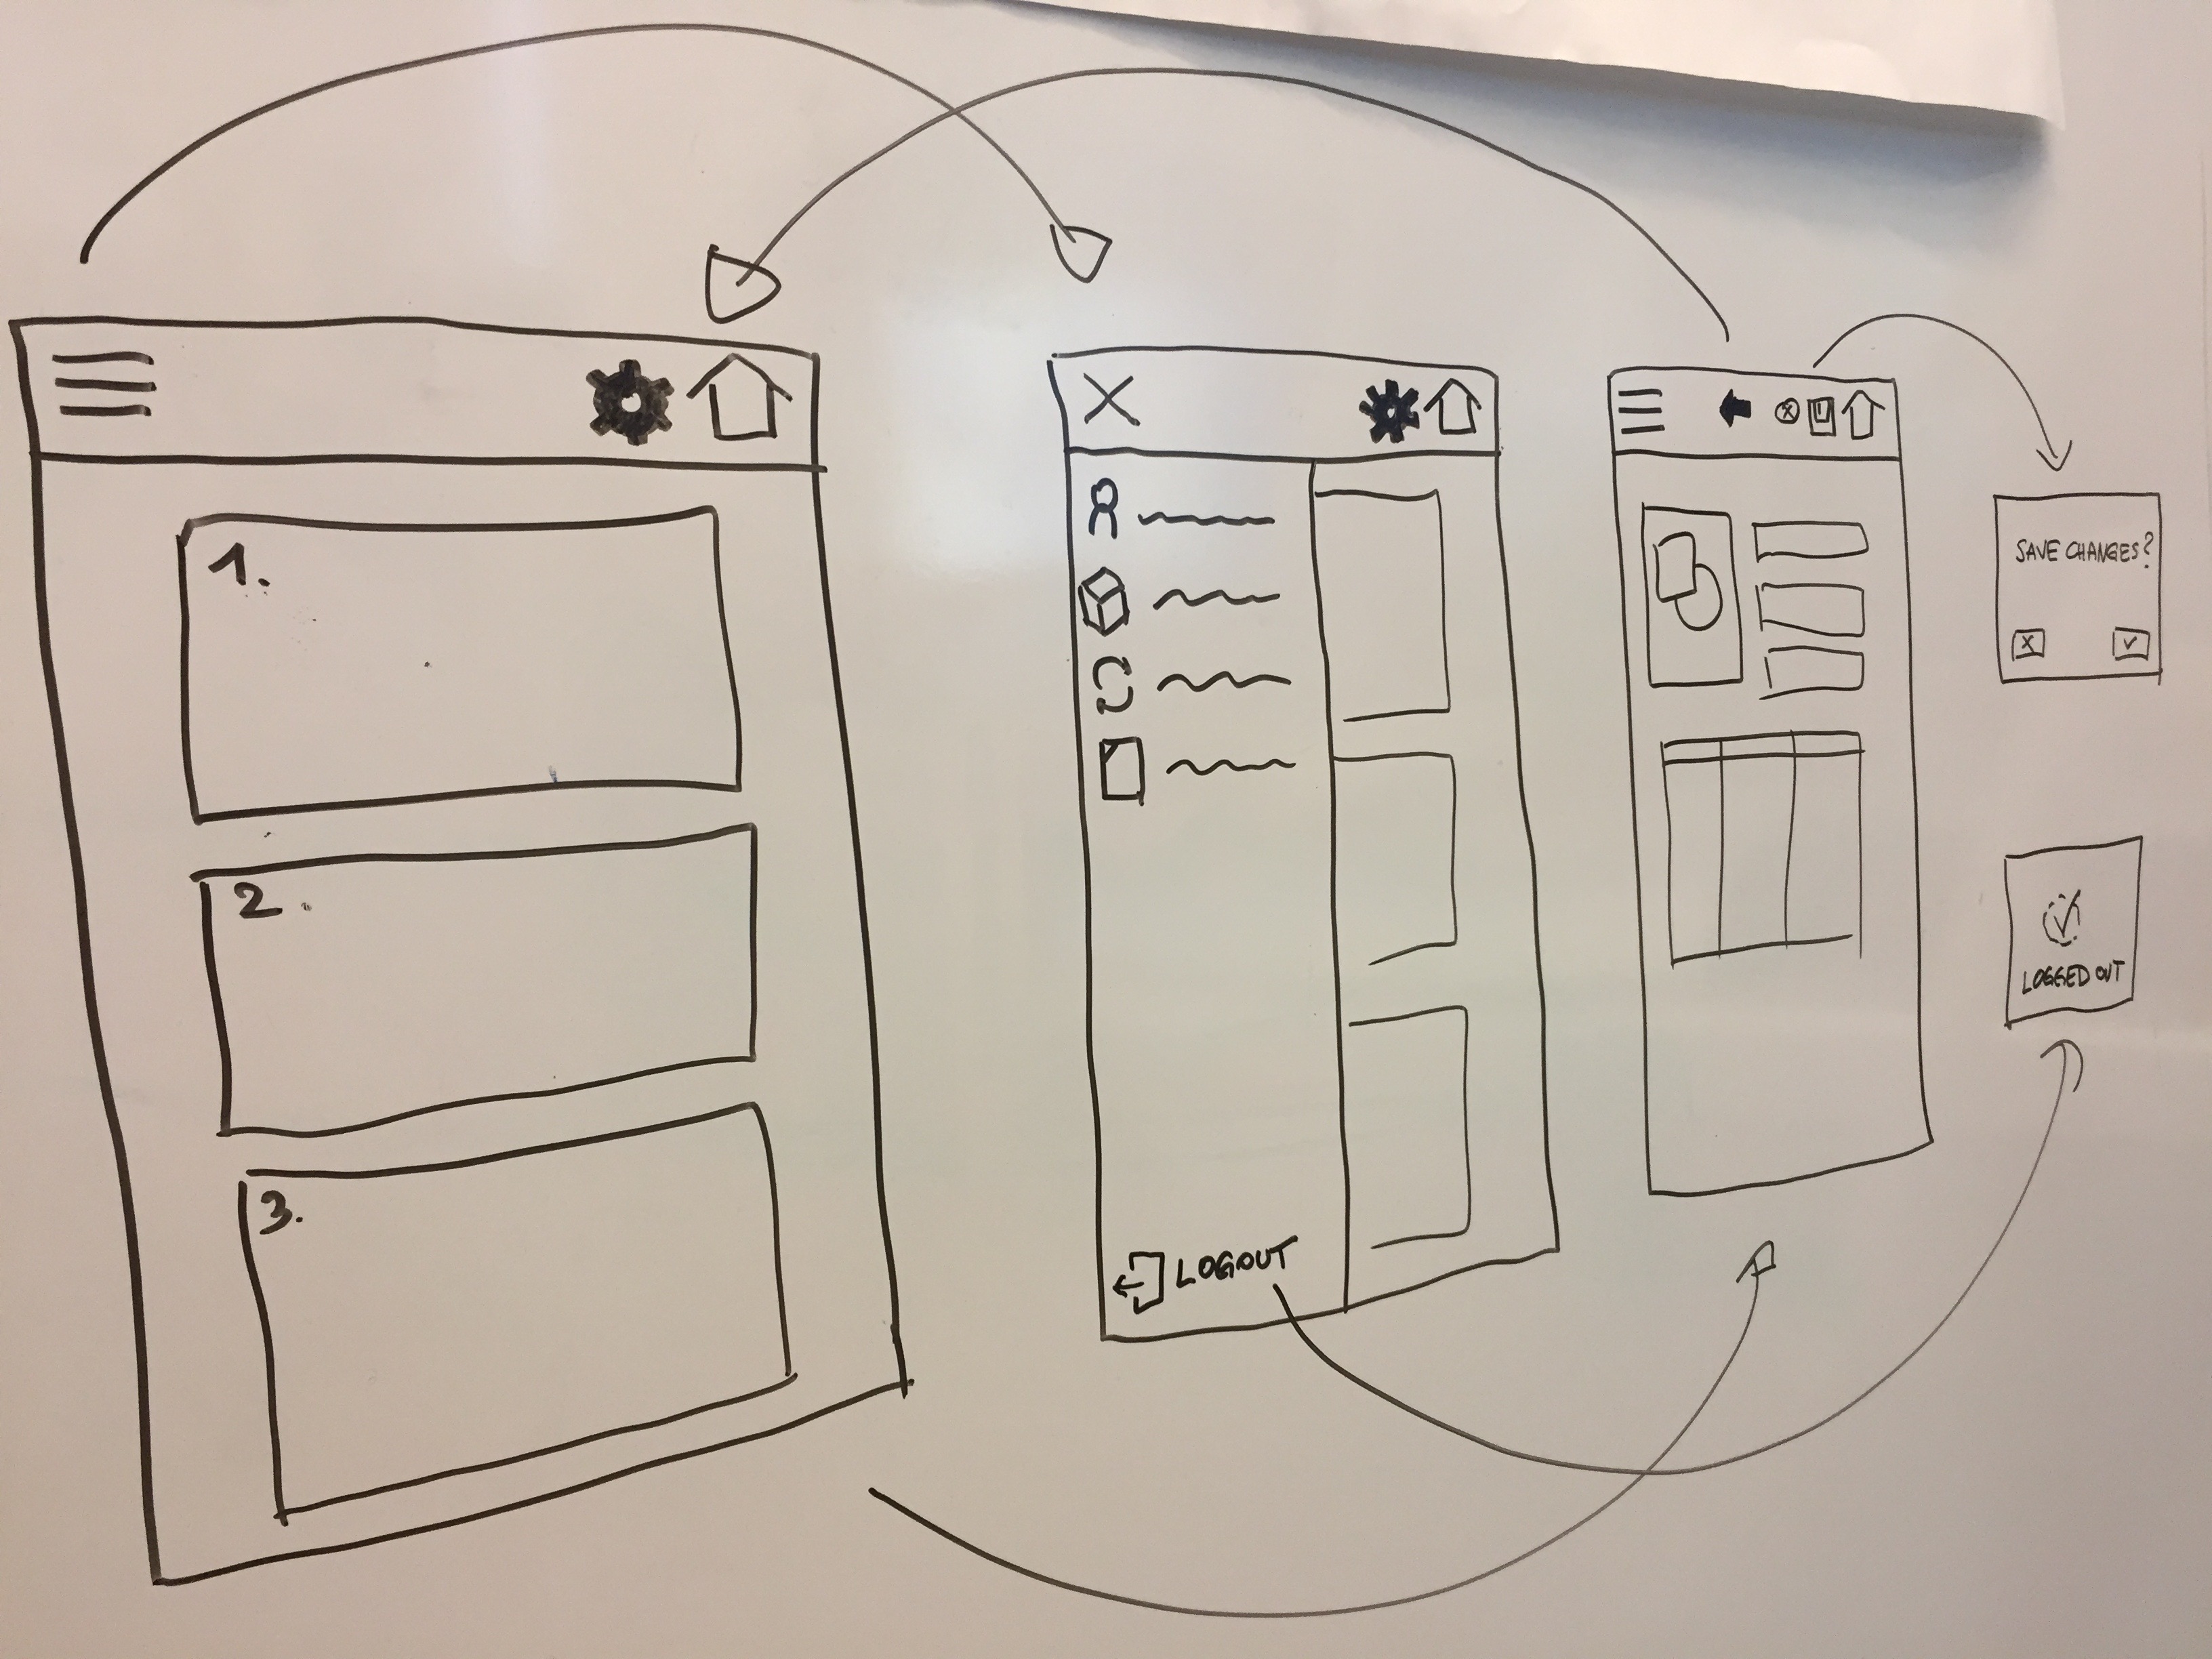 1.
2.
3.
LOGOUT
SAVE CHANGES?
LOGGED OUT